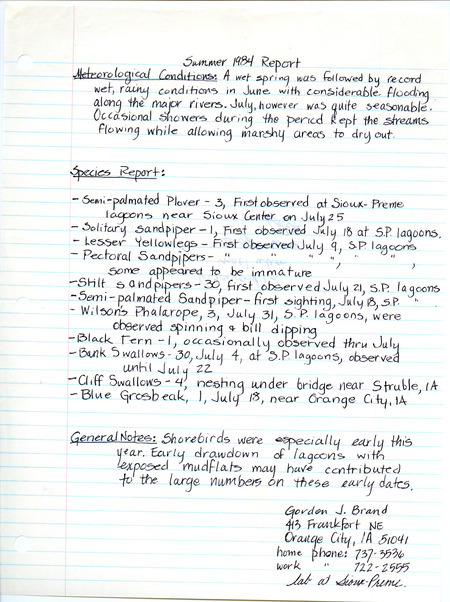 Summer 1984 Report
Meteorological Conditions: A wet spring was followed by record
wet, rainy conditions in June with considerable flooding
along the major rivers. July, however was quite seasonable.
Occasional showers during the period kept the streams
flowing while allowing marshy areas to dry out.
Species Report:
- Semi-palmated Plover - 3, First observed at Sioux-Preme
lagoons near Sioux Center on July 25
- Solitary sandpiper - 1, First observed July 18 at S.P. lagoons.
- Lesser Yellowlegs - First observed July 9, S.P. lagoons
- Pectoral Sandpipers - " " " " , " "
some appeared to be immature
- Stilt sandpipers - 30, first observed July 21, S.P. lagoons
- Semi-palmated Sandpiper - first sighting, July 18, S.P. "
- Wilson's Phalarope, 3, July 31, S.P. lagoons, were
observed spinning & bill dipping
- Black Tern - 1, occasionally observed thru July
- Bank Swallows - 30, July 4, at S.P. lagoons, observed
until July 22
- Cliff Swallows - 4, nesting under bridge near Struble, IA
- Blue Grosbeak, 1, July 18, near Orange City, IA
General Notes: Shorebirds were especially early this
year. Early drawdown of lagoons with
exposed mudflats may have contributed
to the large numbers on these early dates.
Gordon J. Brand
413 Frankfort NE
Orange City, IA 51041
home phone: 737-3536
work " 722-2555
lab at Sioux-Preme.